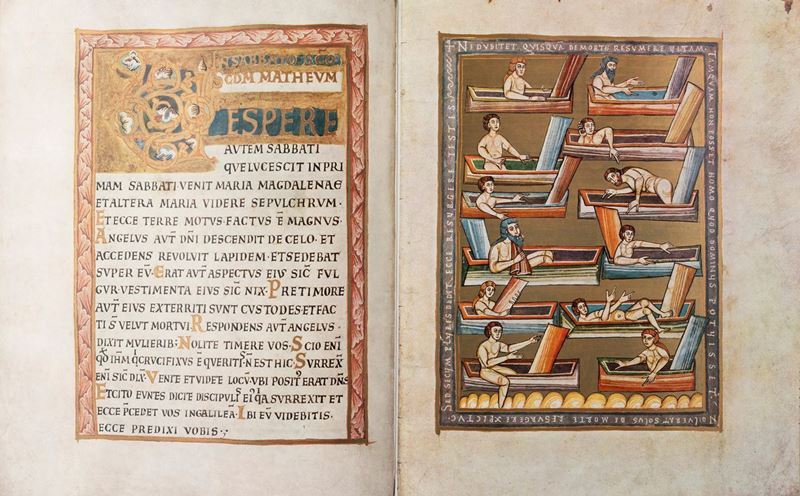 IN SABBATO SCO
SCDM MATHEVM
VESPERE
AVTEM SABBATI
QVE LVCESCIT IN PRI
MAM SABBATI·VENIT MARIA MAGDALENAE
ET ALTERA MARIA VIDERE SEPVLCHRVM·
ET ECCE TERRE MOTVS·FACTVS Ē MAGNVS·
ANGELVS AVT̄ DN̄I DESCENDIT DE CELO·ET
ACCEDENS REVOLVIT LAPIDEM·ET SEDEBAT
SVPER EV̄·ERAT AVT̄ ASPECTVS EIVS SIC̄ FVL
GVR·VESTIMENTA EIVS SIC̄ NIX·PRE TIMORE
AVT̄ EIVS EXTERRITI SVNT CVSTODES·ET FAC
TI S̄ VELVT MORTVI·RESPONDENS AVT̄ ANGELVS·
DIXIT MVLIERIB·NOLITE TIMERE VOS·SCIO ENĪ
QO IHM̄ Q CRVCIFIXVS Ē QVERITIS·NEST HIC·SVRREX̄
ENĪ SIC̄ DIX̄·VENITE ET VIDETE LOCV̄·VBI POSIT ERAT DN̄S·
ET CITO EVNTES DICITE DISCIPVLIS EI QA SVRREXIT·ET
ECCE P̄CEDET VOS IN GALILEĀ·IBI EV̄ VIDEBITIS·
ECCE PREDIXI VOBIS·
NE DVBITET QVISQVĀ DE MORTE RESVMERE VITAM·
TAMQVAM NON POSSET HOMO QVOD DOMINVS POTVISSET·
NOLVERAT SOLVS DE MORTE RESVRGERE XPICTVC·
SED SECVM PLVRES DEDIT ECCE RESVRGERE TESTIS·